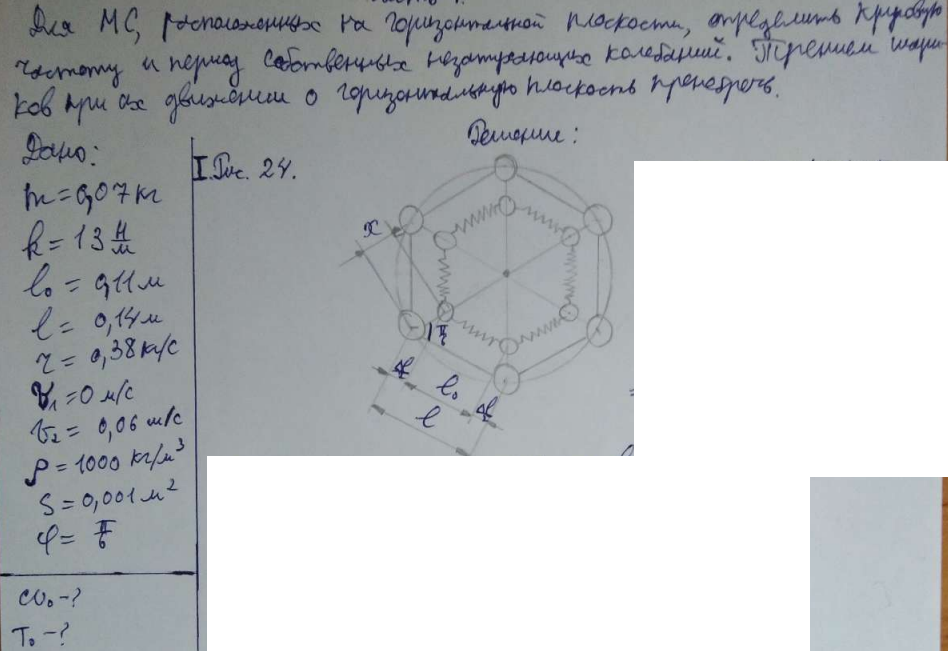 Для МС, расположенных на горизонтальной плоскости, определить круговую
частоту и период собственных незатухающих колебаний. Трением шари-
ков при их движении о горизонтальную плоскость пренебречь.
Дано:
Решение:
I. Рис. 24.
m = 0,07 кг
k = 13 Н/м
l₀ = 0,11 м
l = 0,14 м
r = 0,38 кг/с
v₁ = 0 м/с
v₂ = 0,06 м/с
ρ = 1000 кг/м³
S = 0,001 м²
φ = π/6
ω₀ - ?
T₀ - ?
x
Δl
l₀
Δl
l